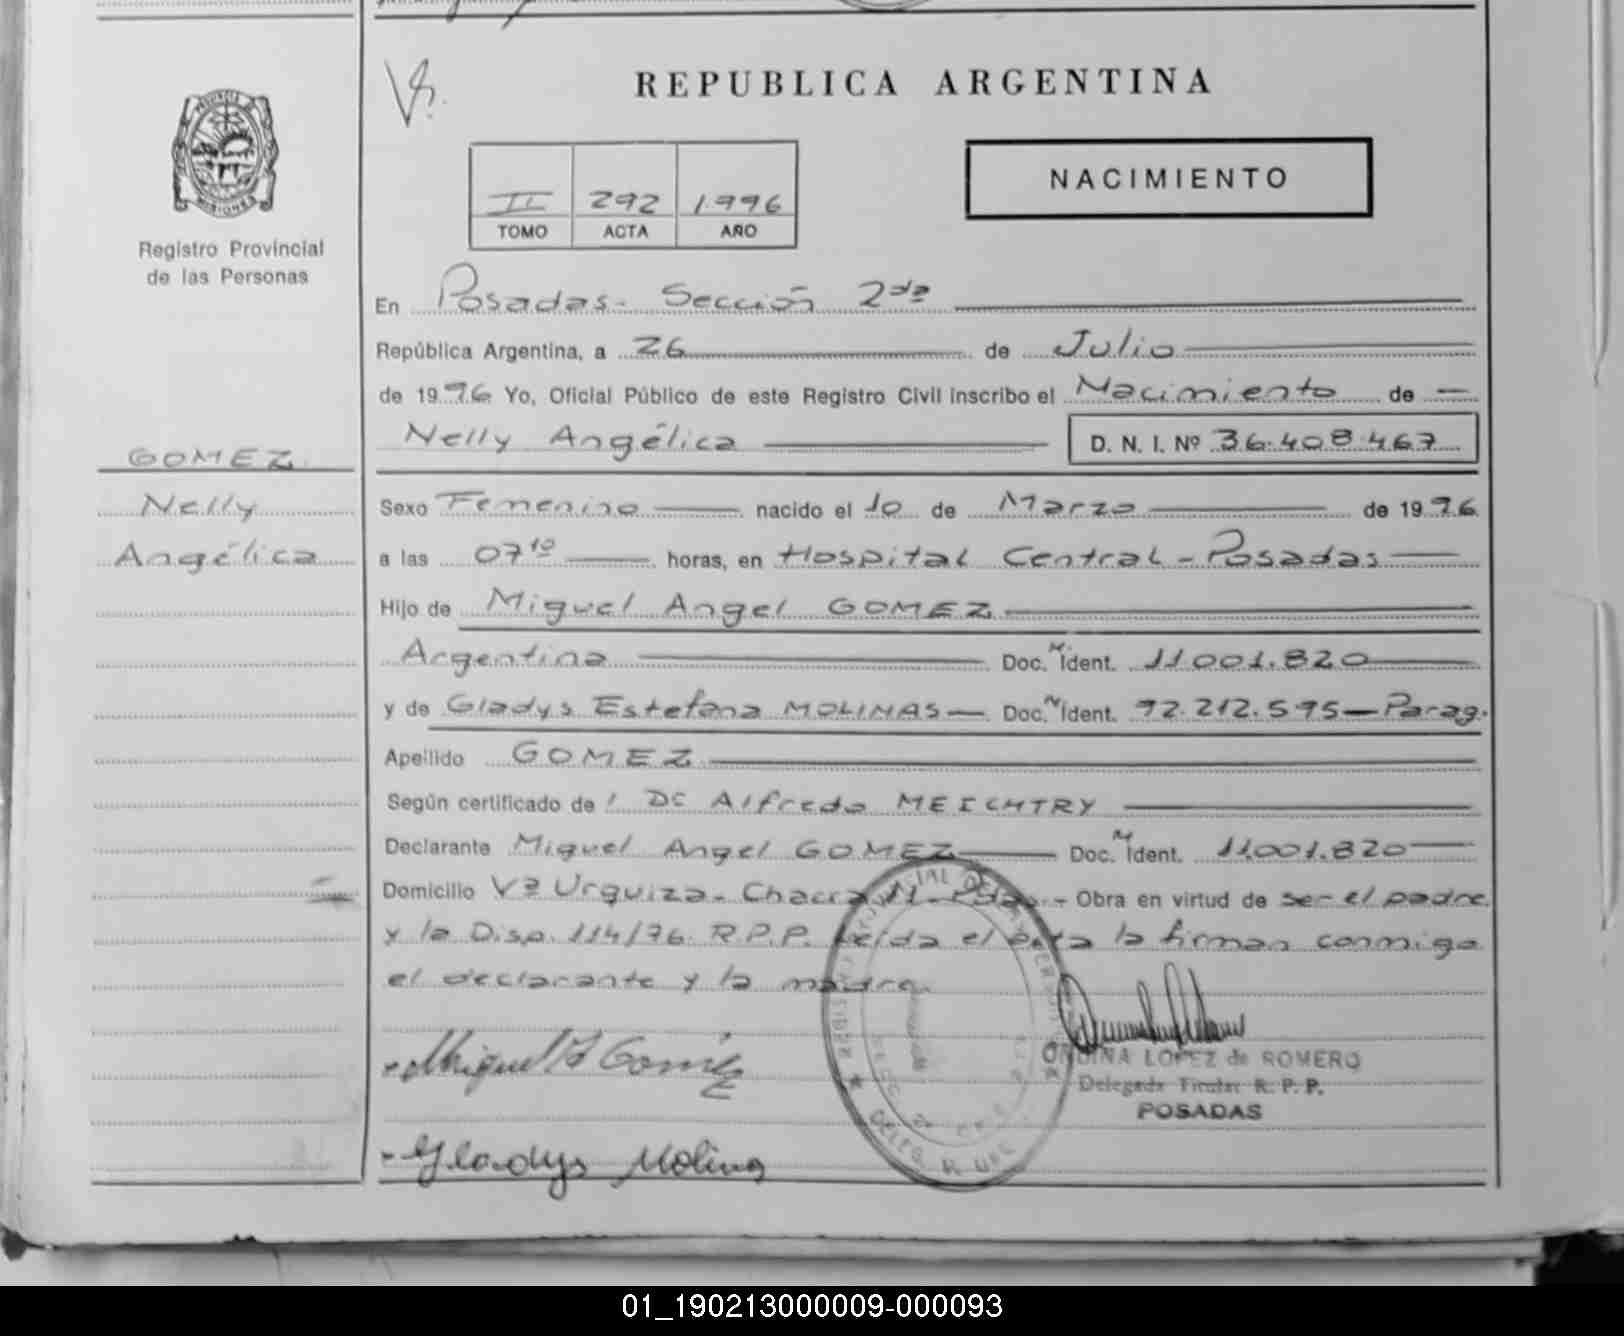 REPUBLICA ARGENTINA
PROVINCIA DE
MISIONES
Registro Provincial
de las Personas
II 292 1996
TOMO ACTA AÑO
NACIMIENTO
En Posadas - Sección 2da
República Argentina, a 26 de Julio
de 1996 Yo, Oficial Público de este Registro Civil inscribo el Nacimiento de
Nelly Angélica D. N. I. Nº 36.408.467
GOMEZ
Nelly
Angélica
Sexo Femenino nacido el 10 de Marzo de 1996
a las 07 10 horas, en Hospital Central - Posadas
Hijo de Miguel Angel GOMEZ
Argentina Doc. N Ident. 11.001.820
y de Gladys Estefana MOLINAS Doc. N Ident. 92.212.595 - Parag.
Apellido GOMEZ
Según certificado de Alfredo MEICHTRY
Declarante Miguel Angel GOMEZ Doc. Ident. 11.001.820
Domicilio Vª Urquiza - Chacra 11 - Pdas. - Obra en virtud de ser el padre
y la Disp. 114/96 R.P.P. Leída el acta la firman conmigo
el declarante y la madre.
Miguel A Gomez
Gladys Molinas
ONDINA LOPEZ de ROMERO
Delegada Titular R. P. P.
POSADAS
01_190213000009-000093